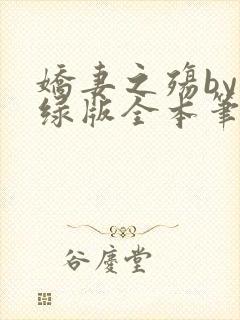 娇妻之殇by
绿版全本笔
谷庆堂